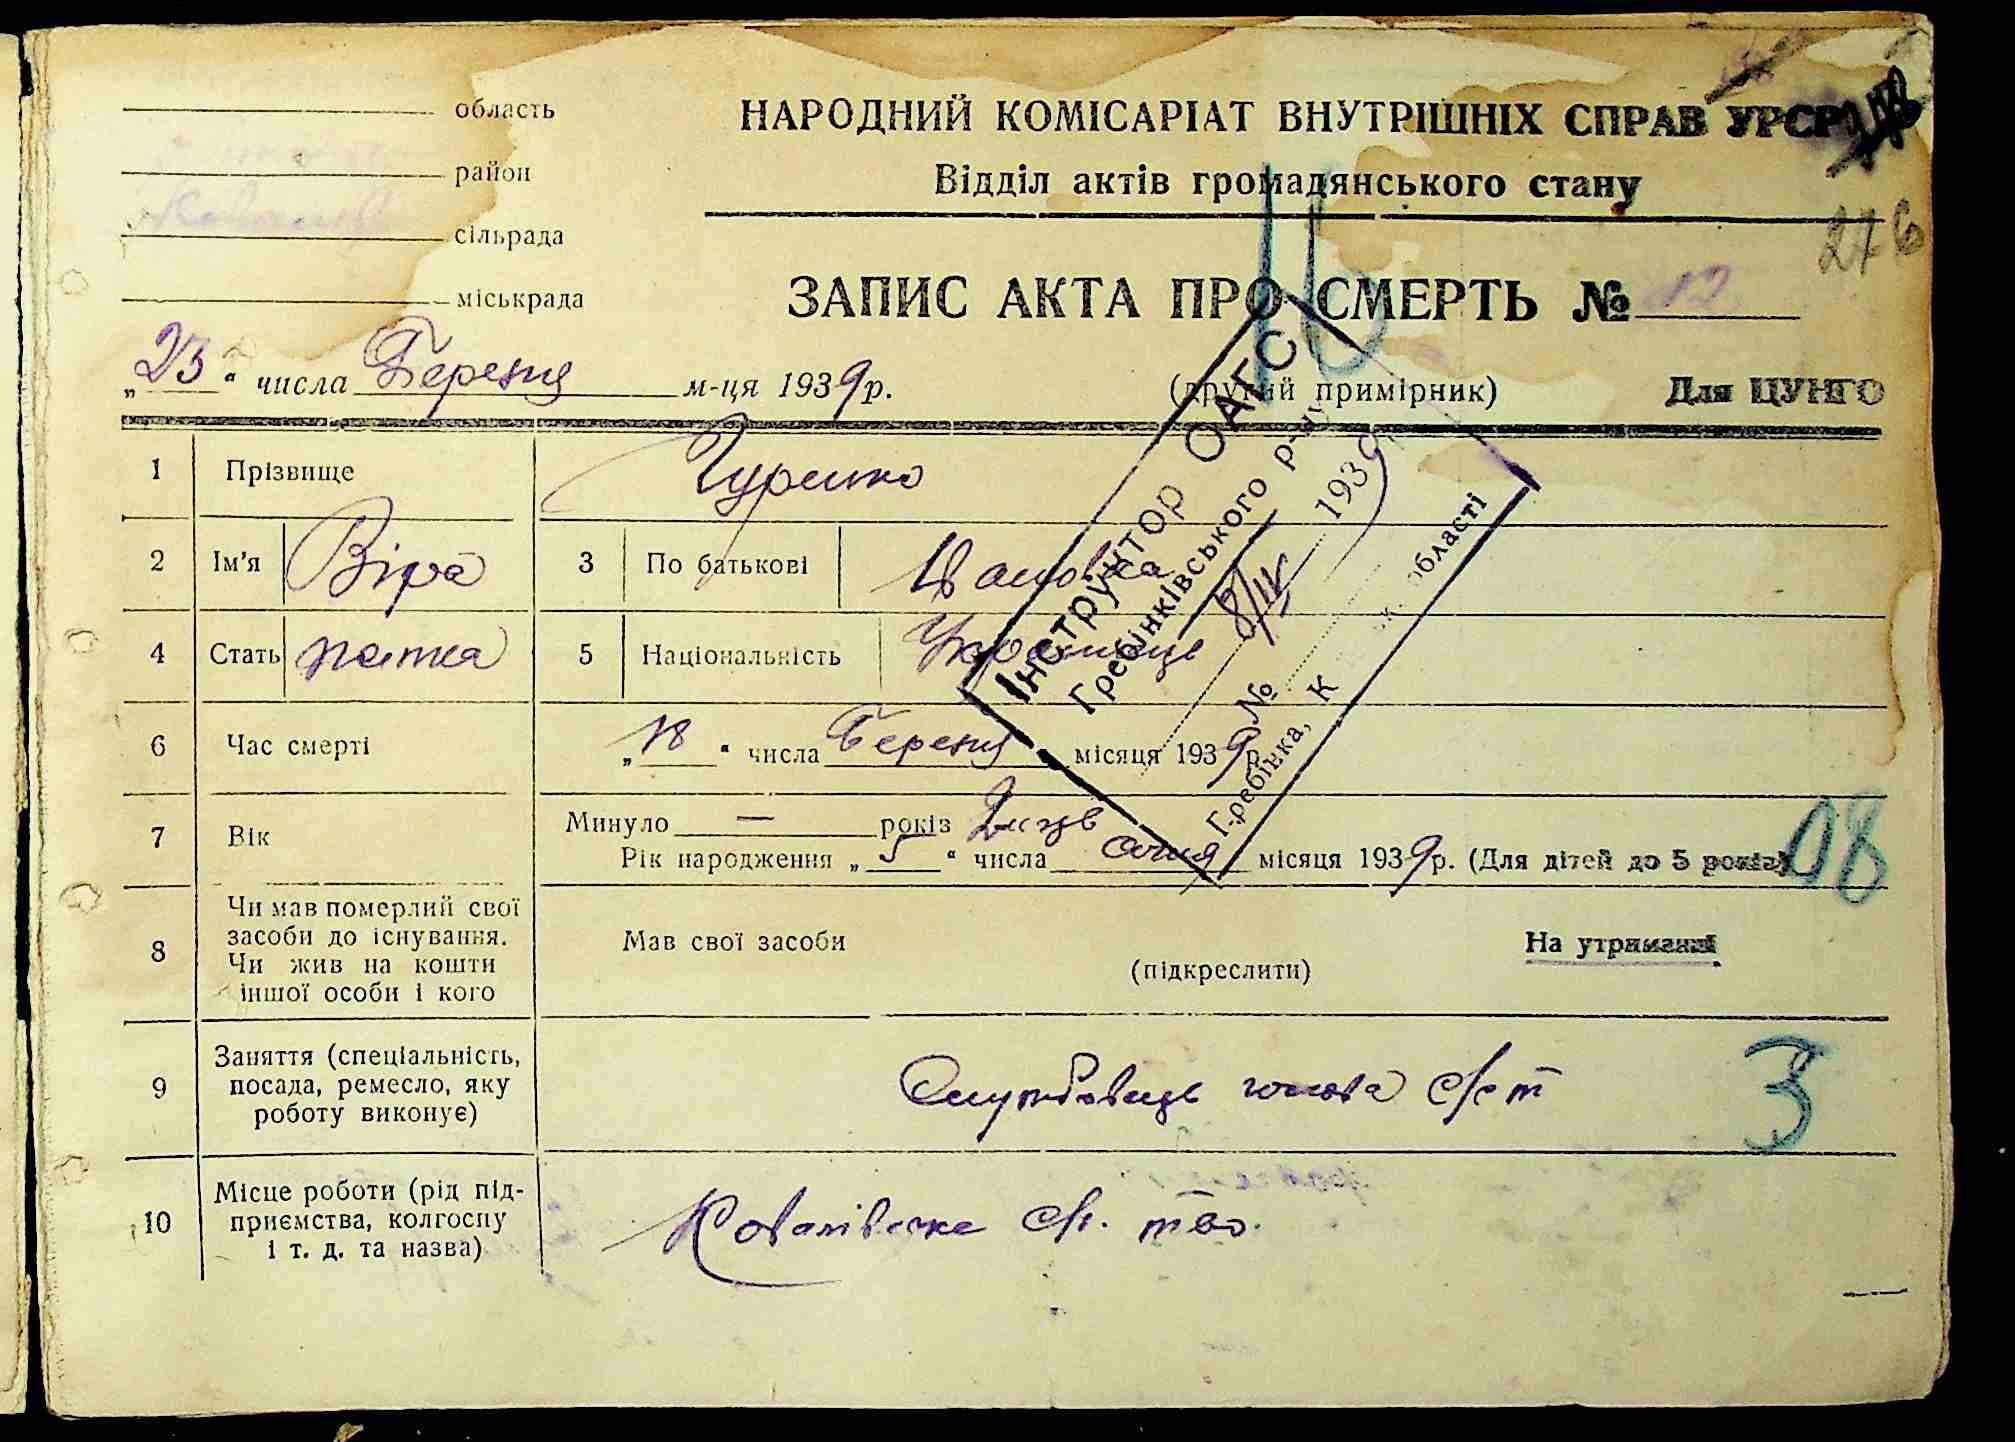 область
район
сільрада
міськрада
НАРОДНИЙ КОМІСАРІАТ ВНУТРІШНІХ СПРАВ УРСР
Відділ актів громадянського стану
276
ЗАПИС АКТА ПРО СМЕРТЬ № 12
16
„23“ числа Березня м-ця 1939 р.
(другий примірник) Для ЦУНГО
1 Прізвище
2 Ім'я Віра 3 По батькові Івановна
4 Стать жінка 5 Національність Українець
6 Час смерті „18“ числа Березня місяця 1939 р.
7 Вік Минуло — років 2 місяців
Рік народження „5“ числа Січня місяця 1939 р. (Для дітей до 5 років)
08
8 Чи мав померлий свої
засоби до існування.
Чи жив на кошти
іншої особи і кого
Мав свої засоби На утриманні
(підкреслити)
9 Заняття (спеціальність,
посада, ремесло, яку
роботу виконує)
Службовець голова с/ст
3
10 Місце роботи (рід під-
приємства, колгоспу
і т. д. та назва)
Ковалівське с/г. тво.
Інструктор ОАГС
Гребінківського р-ну
8/IV 1939
№
Гребінка, К області